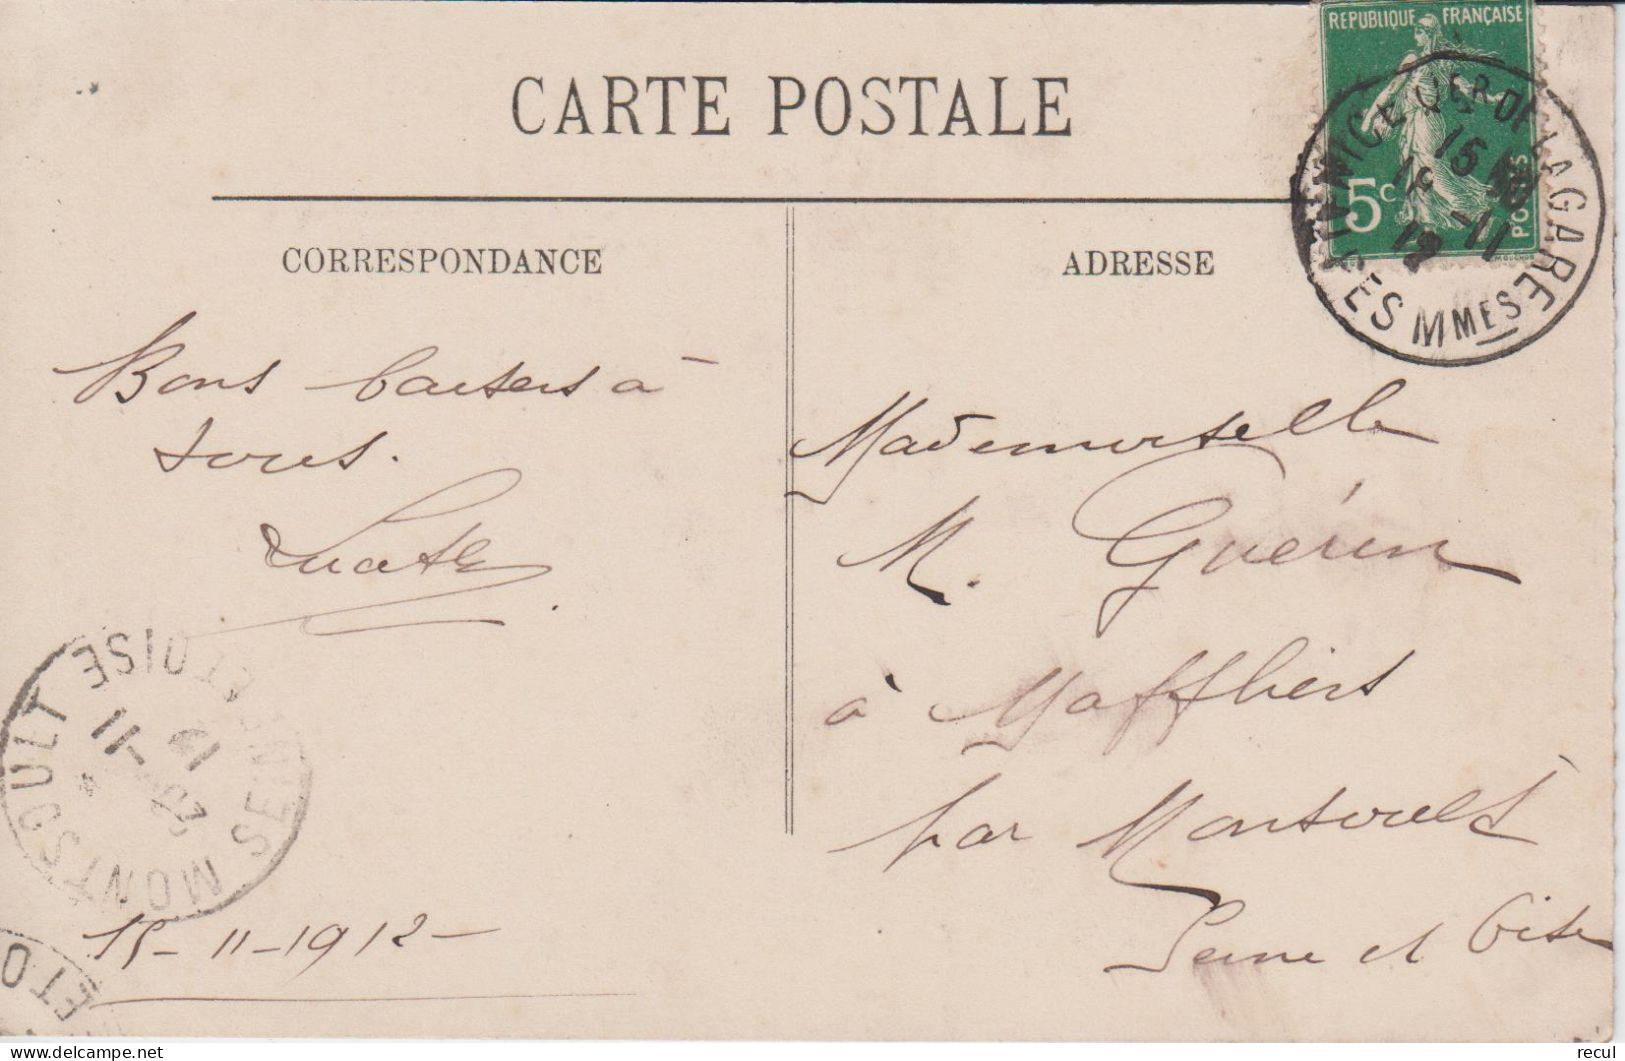 CARTE POSTALE
REPUBLIQUE FRANÇAISE
5c
POSTES
NICE QER DE LA GARE
ALPES MMES
15
16 -11
12
CORRESPONDANCE
ADRESSE
Bons baisers à
tous.
Mademoiselle
M. Guérin
à Maffliers
par Montsoult
Seine et Oise
MONTSOULT
SEINE ET OISE
11
12
15-11-1912-
ETO
delcampe.net
recul